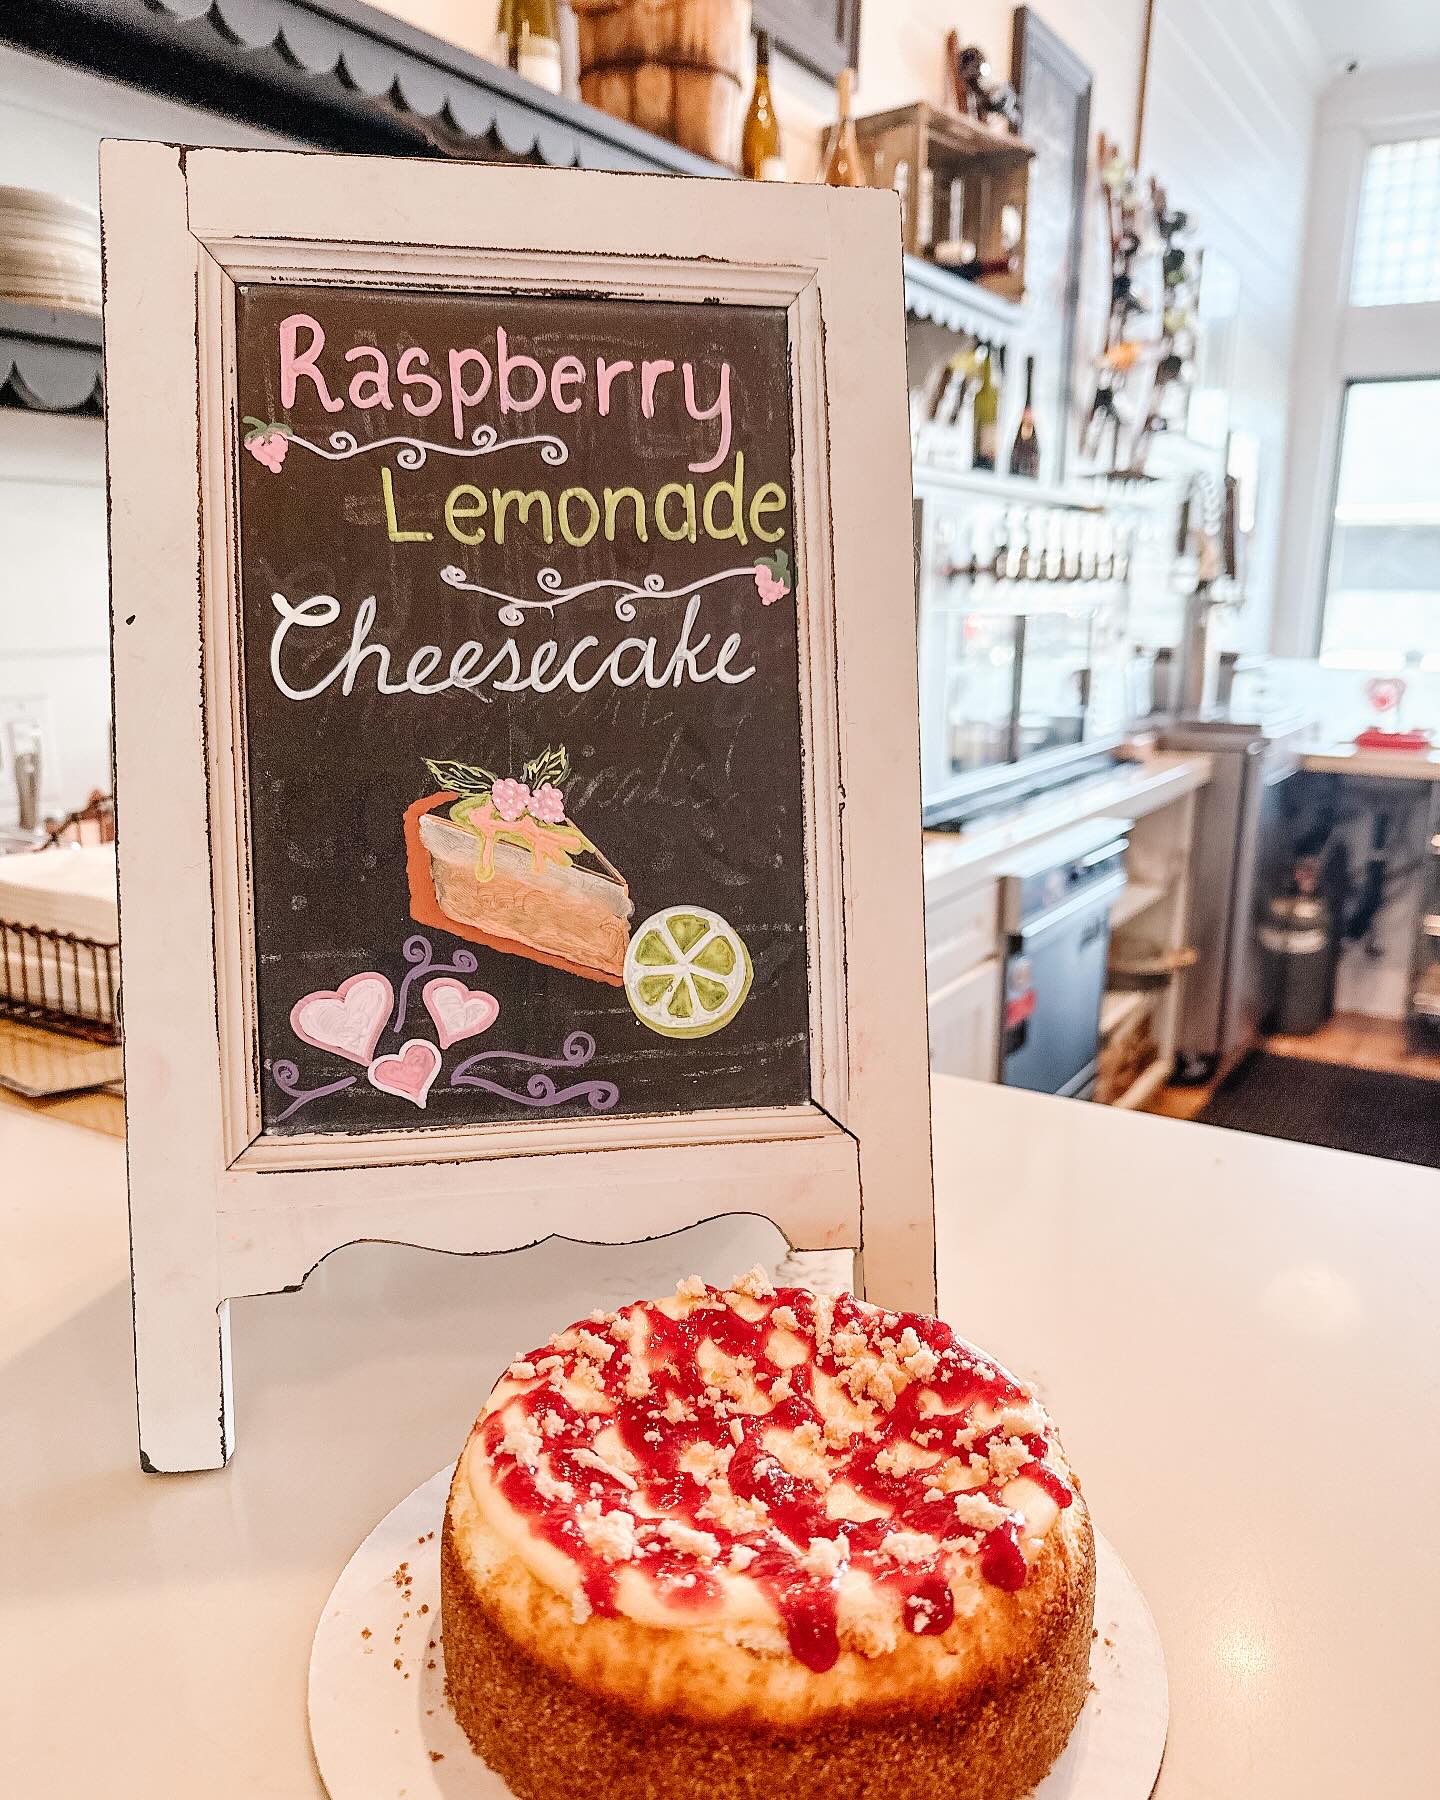 Raspberry
Lemonade
Cheesecake